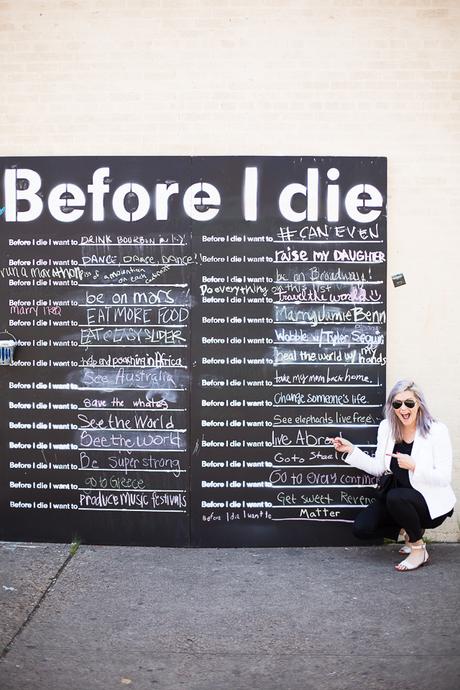 Before I die
Before I die I want to DRINK BOURBON
Before I die I want to DANCE, DANCE, DANCE!
run a marathon
Before I die I want to
Before I die I want to
Before I die I want to be on mars
marry
Before I die I want to EAT MORE FOOD
Before I die I want to EAT EASY SLIDER
Before I die I want to help end poaching in Africa
Before I die I want to See Australia
Before I die I want to Save the whales
Before I die I want to See the World
Before I die I want to See the world
Before I die I want to Be Super strong
Before I die I want to go to Greece
Before I die I want to produce MUSIC festivals
Before I die I want to #CAN'EVEN
Before I die I want to raise my DAUGHTER
Before I die I want to be on Broadway!
Do everything on this list
Before I die I want to Travel the World
Before I die I want to Marry Jamie Benn
Before I die I want to Wobble w/ Tyler Seguin
Before I die I want to heal the world w/ my hands
Before I die I want to take my mom back home.
Before I die I want to Change someone's life
Before I die I want to See elephants live free
Before I die I want to live Abroad
Before I die I want to Go to
Before I die I want to Go to every continent
Before I die I want to Get sweet Revenge
Before I Die I want to Matter